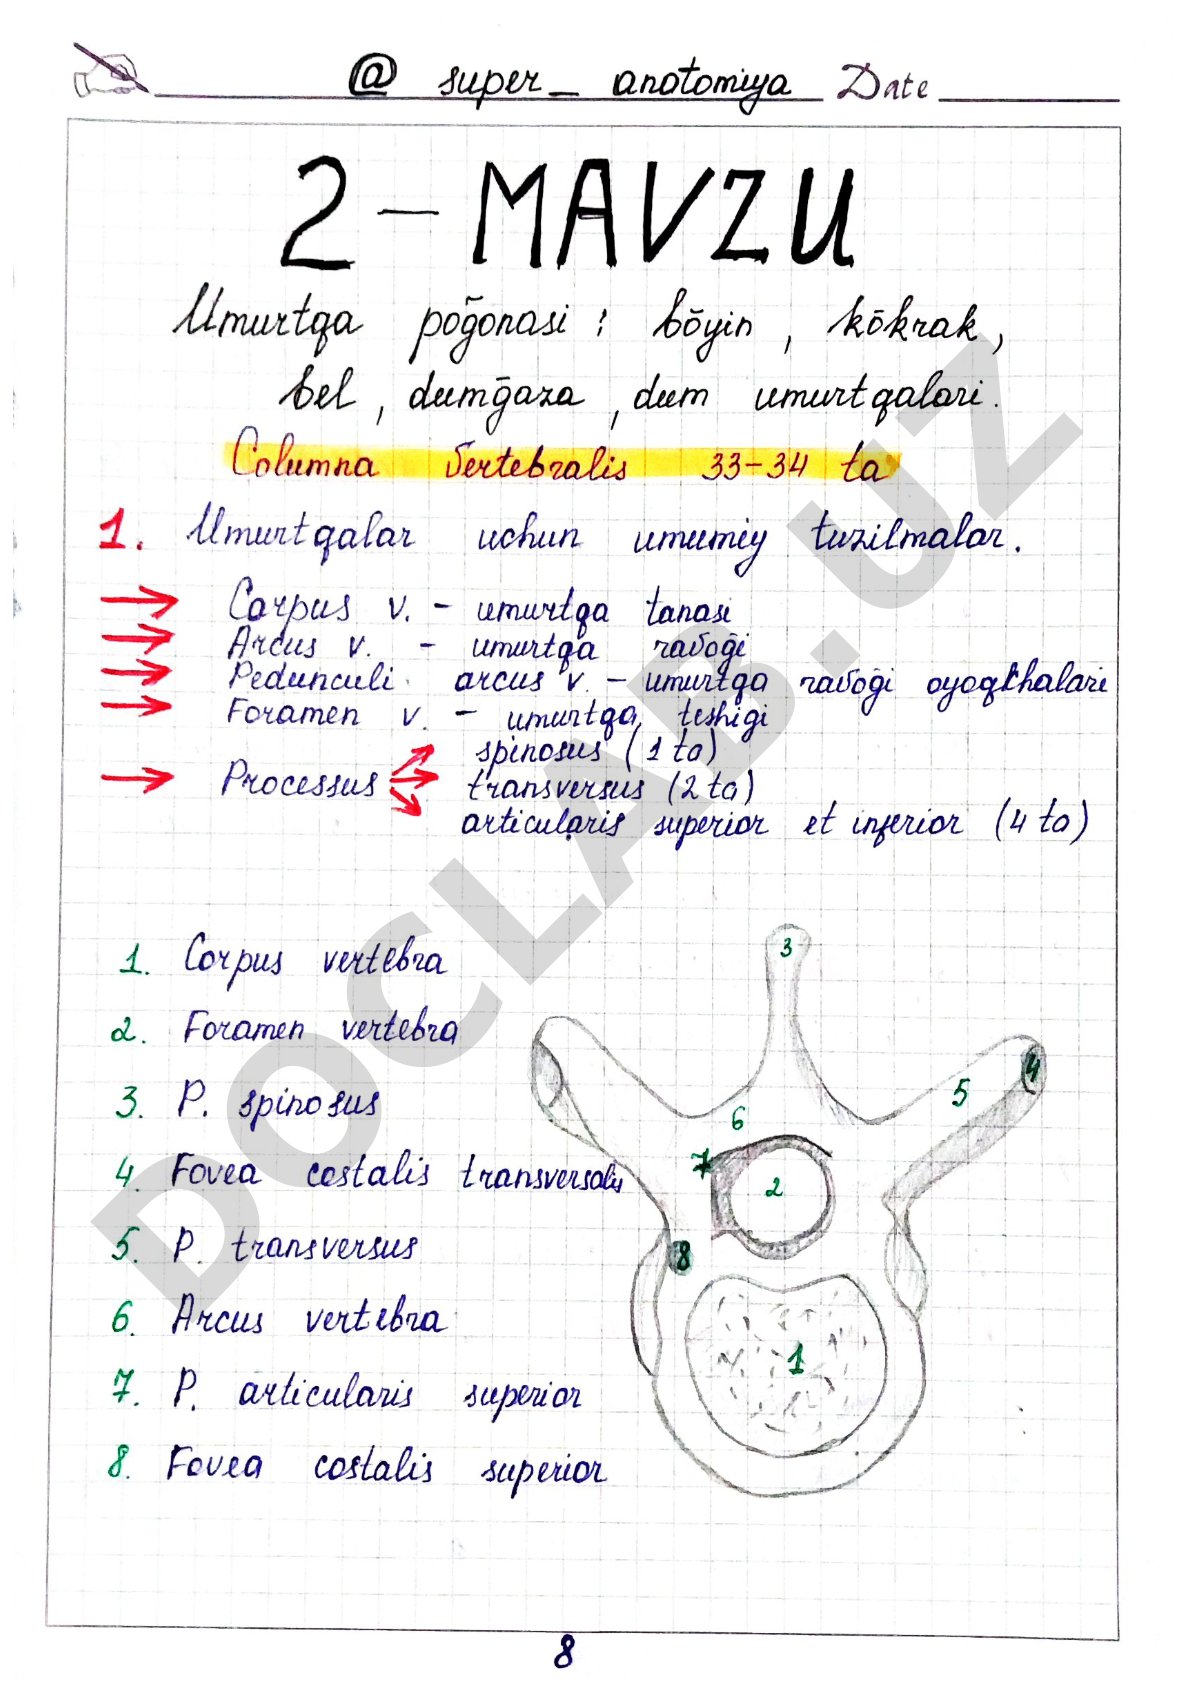 @ super_ anatomiya Date
2-MAVZU
Umurtqa pōḡonasi : bōyin , kōkrak ,
bel , dumḡaza , dum umurtqalari.
Columna vertebralis 33-34 ta
1. Umurtqalar uchun umumiy tuzilmalar.
Corpus v. - umurtqa tanasi
Arcus v. - umurtqa ravoḡi
Pedunculi arcus v. - umurtqa ravoḡi oyoqchalari
Foramen v. - umurtqa teshigi
spinosus (1 ta)
Processus transversus (2 ta)
articularis superior et inferior (4 ta)
1. Corpus vertebra
2. Foramen vertebra
3. P. spinosus
4. Fovea costalis transversalis
5. P. transversus
6. Arcus vertebra
7. P. articularis superior
8. Fovea costalis superior
3
4
5
6
7
2
8
1
8
DOCLAB.UZ